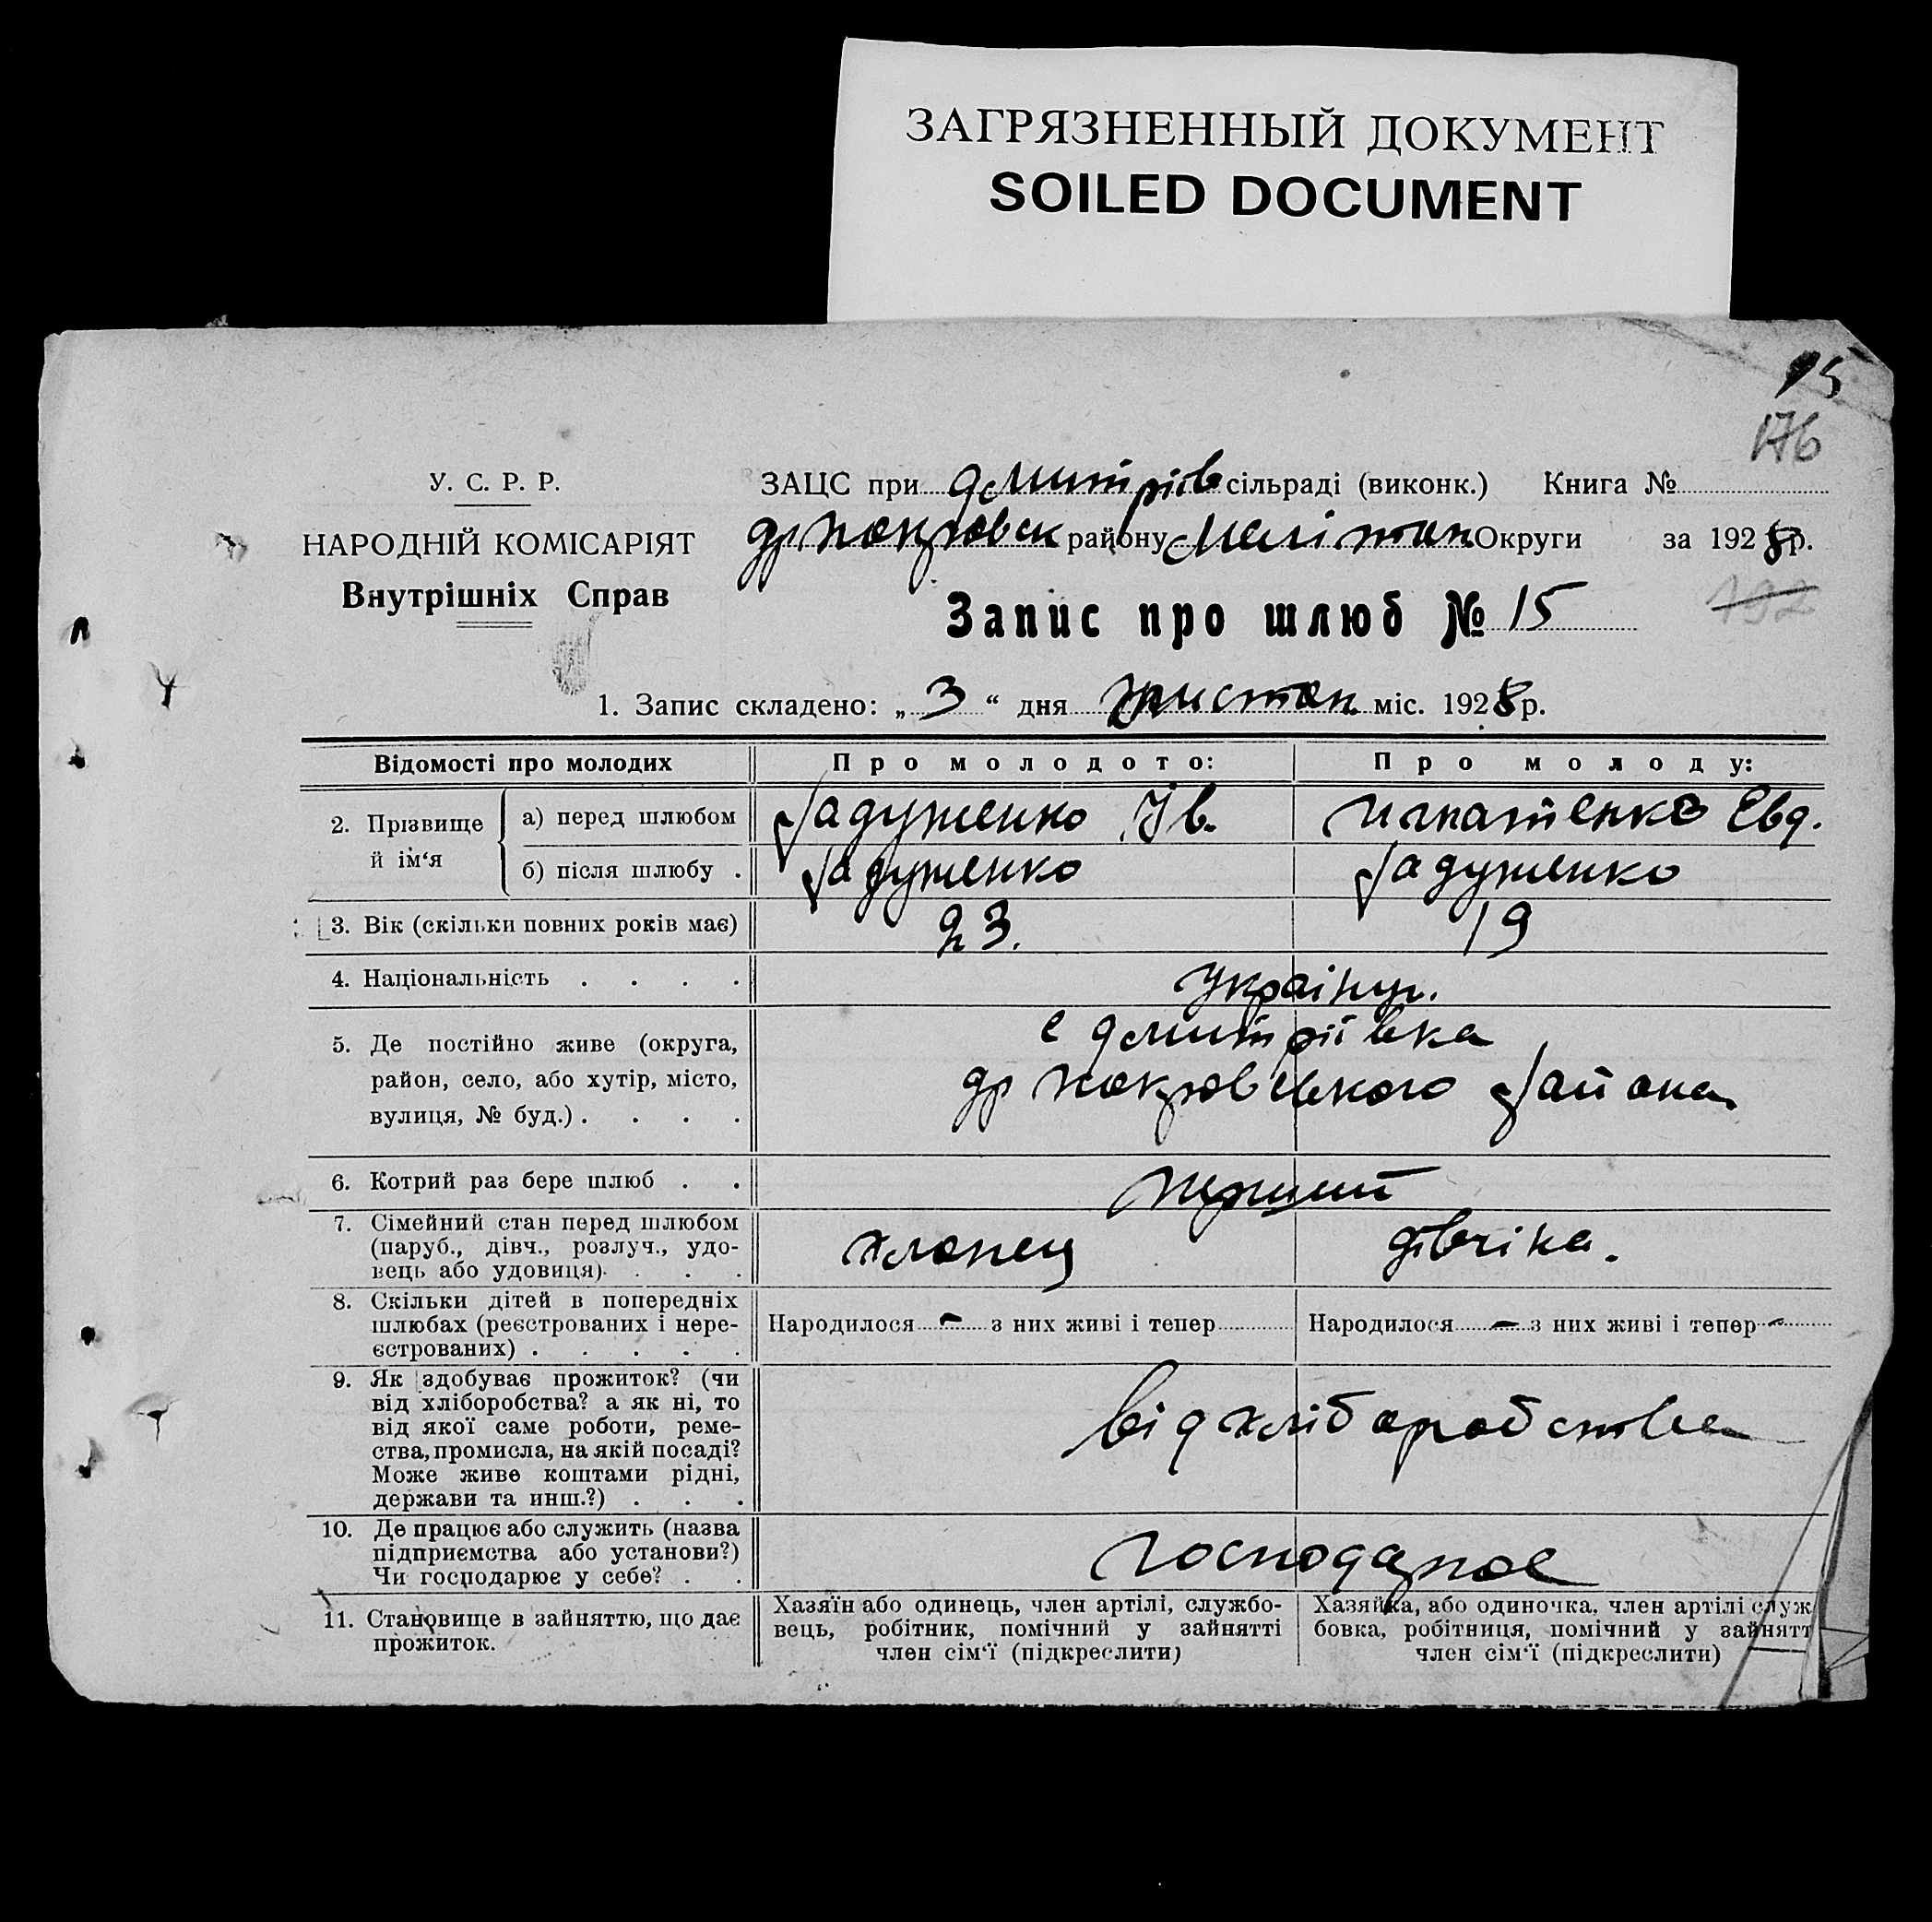 ЗАГРЯЗНЕННЫЙ ДОКУМЕНТ
SOILED DOCUMENT
15
176
У. С. Р. Р.
НАРОДНІЙ КОМІСАРІЯТ
Внутрішніх Справ
ЗАЦС при Дмитріїв сільраді (виконк.) Книга №
др покровск району Мелітоп Округи за 1928 р.
192
Запис про шлюб № 15
1. Запис складено: „ 3 “ дня місс. 1928 р.
Відомості про молодих Про молодого: Про молоду:
2. Прізвище й ім‘я
а) перед шлюбом Гадуженко Ів. Ігнатенко Евд.
б) після шлюбу . Гадуженко Гадуженко
3. Вік (скільки повних років має) 23. 19
4. Національність . . . . україну.
5. Де постійно живе (округа,
район, село, або хутір, місто,
вулиця, № буд.) . . . .
с Дмитріївка
др покровського района
6. Котрий раз бере шлюб . . перший
7. Сімейний стан перед шлюбом
(паруб., дівч., розлуч., удо-
вець або удовиця) . . .
хлопец дівчіна.
8. Скільки дітей в попередніх
шлюбах (реєстрованих і нере-
єстрованих) . . . . .
Народилося - з них живі і тепер
Народилося - з них живі і тепер -
9. Як здобуває прожиток? (чи
від хліборобства? а як ні, то
від якої саме роботи, реме-
ства, промисла, на якій посаді?
Може живе коштами рідні,
держави та инш.?) . . .
від хліборобства
10. Де працює або служить (назва
підприємства або установи?)
Чи господарює у себе? . .
господарює
11. Становище в зайняттю, що дає
прожиток.
Хазяїн або одинець, член артілі, службо-
вець, робітник, помічний у зайнятті
член сім‘ї (підкреслити)
Хазяйка, або одиночка, член артілі служ
бовка, робітниця, помічний у зайнятт
член сім‘ї (підкреслити)